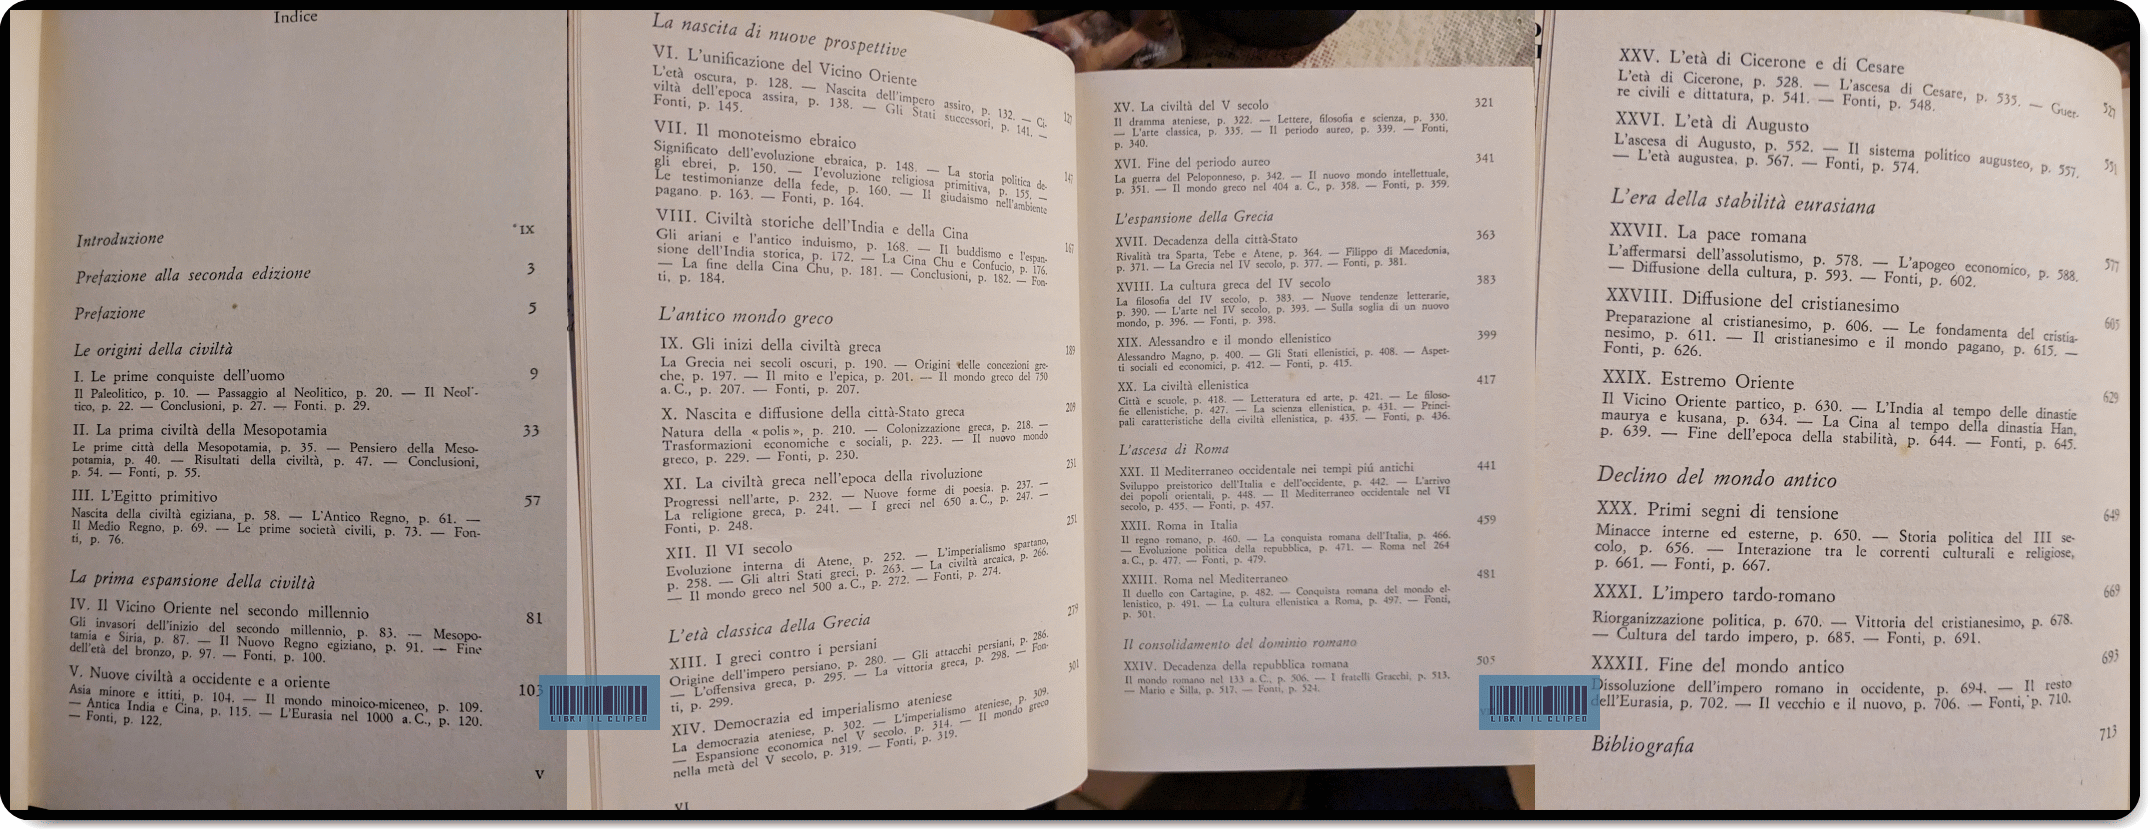 Indice
Introduzione IX
Prefazione alla seconda edizione 3
Prefazione 5
Le origini della civiltà
I. Le prime conquiste dell'uomo 9
Il Paleolitico, p. 10. — Passaggio al Neolitico, p. 20. — Il Neoli-
tico, p. 22. — Conclusioni, p. 27. — Fonti, p. 29.
II. La prima civiltà della Mesopotamia 33
Le prime città della Mesopotamia, p. 35. — Pensiero della Meso-
potamia, p. 40. — Risultati della civiltà, p. 47. — Conclusioni,
p. 54. — Fonti, p. 55.
III. L'Egitto primitivo 57
Nascita della civiltà egiziana, p. 58. — L'Antico Regno, p. 61. —
Il Medio Regno, p. 69. — Le prime società civili, p. 73. — Fon-
ti, p. 76.
La prima espansione della civiltà
IV. Il Vicino Oriente nel secondo millennio 81
Gli invasori dell'inizio del secondo millennio, p. 83. — Mesopo-
tamia e Siria, p. 87. — Il Nuovo Regno egiziano, p. 91. — Fine
dell'età del bronzo, p. 97. — Fonti, p. 100.
V. Nuove civiltà a occidente e a oriente 103
Asia minore e ittiti, p. 104. — Il mondo minoico-miceneo, p. 109.
— Antica India e Cina, p. 115. — L'Eurasia nel 1000 a.C., p. 120.
— Fonti, p. 122.
V
La nascita di nuove prospettive
VI. L'unificazione del Vicino Oriente 127
L'età oscura, p. 128. — Nascita dell'impero assiro, p. 132. — Ci-
viltà dell'epoca assira, p. 138. — Gli Stati successori, p. 141. —
Fonti, p. 145.
VII. Il monoteismo ebraico 147
Significato dell'evoluzione ebraica, p. 148. — La storia politica de-
gli ebrei, p. 150. — L'evoluzione religiosa primitiva, p. 155. —
Le testimonianze della fede, p. 160. — Il giudaismo nell'ambiente
pagano. p. 163. — Fonti, p. 164.
VIII. Civiltà storiche dell'India e della Cina 167
Gli ariani e l'antico induismo, p. 168. — Il buddismo e l'espan-
sione dell'India storica, p. 172. — La Cina Chu e Confucio, p. 176.
— La fine della Cina Chu, p. 181. — Conclusioni, p. 182. — Fon-
ti, p. 184.
L'antico mondo greco
IX. Gli inizi della civiltà greca 189
La Grecia nei secoli oscuri, p. 190. — Origini delle concezioni gre-
che, p. 197. — Il mito e l'epica, p. 201. — Il mondo greco del 750
a. C., p. 207. — Fonti, p. 207.
X. Nascita e diffusione della città-Stato greca 209
Natura della « polis », p. 210. — Colonizzazione greca, p. 218. —
Trasformazioni economiche e sociali, p. 223. — Il nuovo mondo
greco, p. 229. — Fonti, p. 230.
XI. La civiltà greca nell'epoca della rivoluzione 231
Progressi nell'arte, p. 232. — Nuove forme di poesia, p. 237. —
La religione greca, p. 241. — I greci nel 650 a. C., p. 247. —
Fonti, p. 248.
XII. Il VI secolo 251
Evoluzione interna di Atene, p. 252. — L'imperialismo spartano,
p. 258. — Gli altri Stati greci, p. 263. — La civiltà arcaica, p. 266.
— Il mondo greco nel 500 a. C., p. 272. — Fonti, p. 274.
L'età classica della Grecia
XIII. I greci contro i persiani 279
Origine dell'impero persiano, p. 280. — Gli attacchi persiani, p. 286.
— L'offensiva greca, p. 295. — La vittoria greca, p. 298. — Fon-
ti, p. 299.
XIV. Democrazia ed imperialismo ateniese 301
La democrazia ateniese, p. 302. — L'imperialismo ateniese, p. 309.
— Espansione economica nel V secolo, p. 314. — Il mondo greco
nella metà del V secolo, p. 319. — Fonti, p. 319.
VI
XV. La civiltà del V secolo 321
Il dramma ateniese, p. 322. — Lettere, filosofia e scienza, p. 330.
— L'arte classica, p. 335. — Il periodo aureo, p. 339. — Fonti,
p. 340.
XVI. Fine del periodo aureo 341
La guerra del Peloponneso, p. 342. — Il nuovo mondo intellettuale,
p. 351. — Il mondo greco nel 404 a. C., p. 358. — Fonti, p. 359.
L'espansione della Grecia
XVII. Decadenza della città-Stato 363
Rivalità tra Sparta, Tebe e Atene, p. 364. — Filippo di Macedonia,
p. 371. — La Grecia nel IV secolo, p. 377. — Fonti, p. 381.
XVIII. La cultura greca del IV secolo 383
La filosofia del IV secolo, p. 383. — Nuove tendenze letterarie,
p. 390. — L'arte nel IV secolo, p. 393. — Sulla soglia di un nuovo
mondo, p. 396. — Fonti, p. 398.
XIX. Alessandro e il mondo ellenistico 399
Alessandro Magno, p. 400. — Gli Stati ellenistici, p. 408. — Aspet-
ti sociali ed economici, p. 412. — Fonti, p. 415.
XX. La civiltà ellenistica 417
Città e scuole, p. 418. — Letteratura ed arte, p. 421. — Le filoso-
fie ellenistiche, p. 427. — La scienza ellenistica, p. 431. — Princi-
pali caratteristiche della civiltà ellenistica, p. 435. — Fonti, p. 436.
L'ascesa di Roma
XXI. Il Mediterraneo occidentale nei tempi piú antichi 441
Sviluppo preistorico dell'Italia e dell'occidente, p. 442. — L'arrivo
dei popoli orientali, p. 448. — Il Mediterraneo occidentale nel VI
secolo, p. 455. — Fonti, p. 457.
XXII. Roma in Italia 459
Il regno romano, p. 460. — La conquista romana dell'Italia, p. 466.
— Evoluzione politica della repubblica, p. 471. — Roma nel 264
a. C., p. 477. — Fonti, p. 479.
XXIII. Roma nel Mediterraneo 481
Il duello con Cartagine, p. 482. — Conquista romana del mondo el-
lenistico, p. 491. — La cultura ellenistica a Roma, p. 497. — Fonti,
p. 501.
Il consolidamento del dominio romano
XXIV. Decadenza della repubblica romana 505
Il mondo romano nel 133 a. C., p. 506. — I fratelli Gracchi, p. 513.
— Mario e Silla, p. 517. — Fonti, p. 524.
XXV. L'età di Cicerone e di Cesare 527
L'età di Cicerone, p. 528. — L'ascesa di Cesare, p. 535. — Guer-
re civili e dittatura, p. 541. — Fonti, p. 548.
XXVI. L'età di Augusto 551
L'ascesa di Augusto, p. 552. — Il sistema politico augusteo, p. 557.
— L'età augustea, p. 567. — Fonti, p. 574.
L'era della stabilità eurasiana
XXVII. La pace romana 577
L'affermarsi dell'assolutismo, p. 578. — L'apogeo economico, p. 588.
— Diffusione della cultura, p. 593. — Fonti, p. 602.
XXVIII. Diffusione del cristianesimo 605
Preparazione al cristianesimo, p. 606. — Le fondamenta del cristia-
nesimo, p. 611. — Il cristianesimo e il mondo pagano, p. 615. —
Fonti, p. 626.
XXIX. Estremo Oriente 629
Il Vicino Oriente partico, p. 630. — L'India al tempo delle dinastie
maurya e kusana, p. 634. — La Cina al tempo della dinastia Han,
p. 639. — Fine dell'epoca della stabilità, p. 644. — Fonti, p. 645.
Declino del mondo antico
XXX. Primi segni di tensione 649
Minacce interne ed esterne, p. 650. — Storia politica del III se-
colo, p. 656. — Interazione tra le correnti culturali e religiose,
p. 661. — Fonti, p. 667.
XXXI. L'impero tardo-romano 669
Riorganizzazione politica, p. 670. — Vittoria del cristianesimo, p. 678.
— Cultura del tardo impero, p. 685. — Fonti, p. 691.
XXXII. Fine del mondo antico 693
Dissoluzione dell'impero romano in occidente, p. 694. — Il resto
dell'Eurasia, p. 702. — Il vecchio e il nuovo, p. 706. — Fonti, p. 710.
Bibliografia 713
LIBRI IL CLIPEO
LIBRI IL CLIPEO